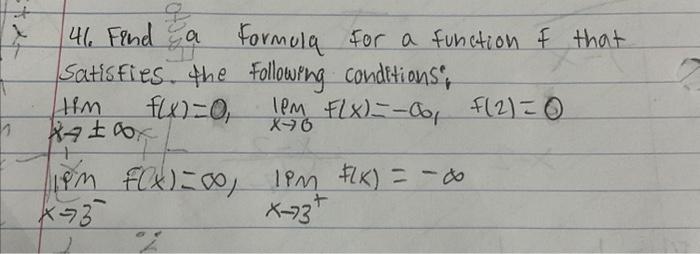 41. Find a formula for a function f that
Satisfies the following conditions:
lim f(x)=0, lim f(x)=-∞, f(2)=0
x→±∞ x→0
lim f(x)=∞, lim f(x)=-∞
x→3⁻ x→3⁺